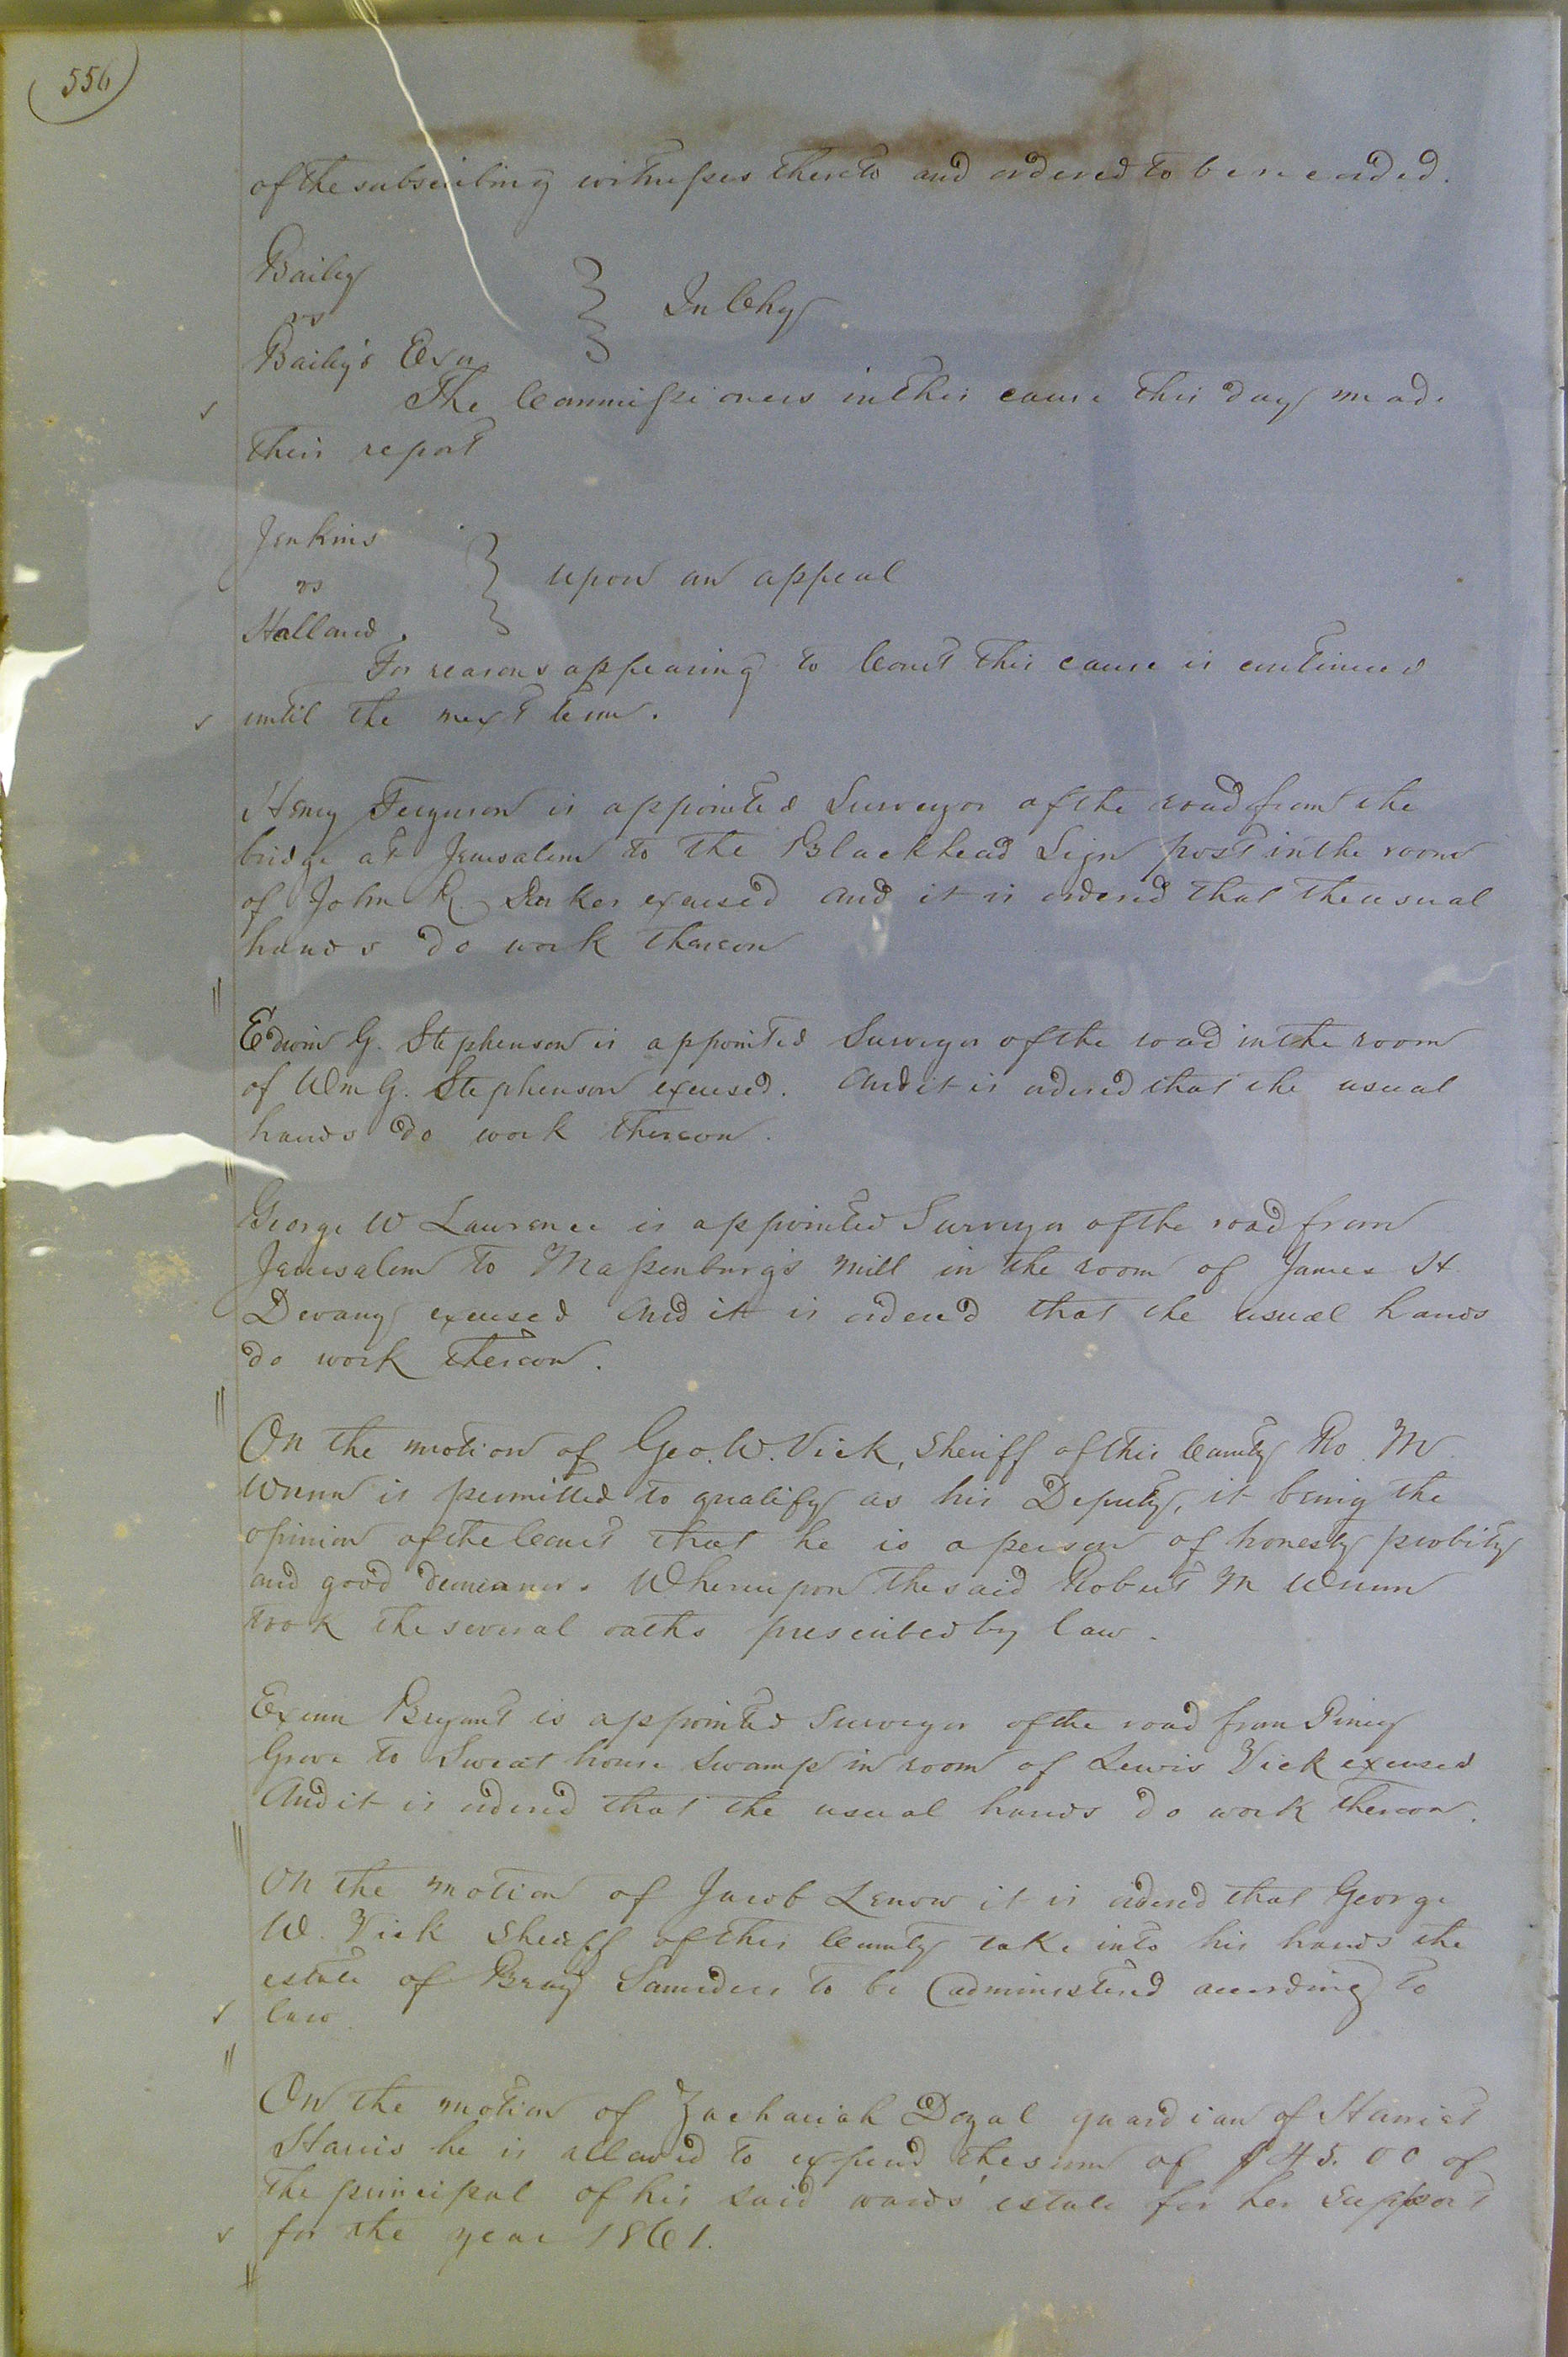 556
of the subscribing witnesses thereto and ordered to be recorded.
Bailey
vs } In Chy
Bailey's Exr
The Commissioners in this cause this day made
their report
Jenkins
vs } upon an appeal
Holland.
For reasons appearing to Court this cause is continued
until the next term.
Henry Ferguson is appointed Surveyor of the road from the
bridge at Jerusalem to the Blackhead Sign post in the room
of John R. excused and it is ordered that the usual
hands do work thereon
Edwin G. Stephenson is appointed Surveyor of the road in the room
of Wm G. Stephenson excused. And it is ordered that the usual
hands do work thereon.
George W Lawrence is appointed Surveyor of the road from
Jerusalem to Massenburg's Mill in the room of James H.
Devany excused And it is ordered that the usual hands
do work thereon.
On the motion of Geo. W. Vick, Sheriff of this County Ro. M.
Wrenn is permitted to qualify as his Deputy, it being the
opinion of the Court that he is a person of honesty probity
and good demeanor. Whereupon the said Robert M Wrenn
took the several oaths prescribed by law.
Exum Bryant is appointed Surveyor of the road from Piney
Grove to Sweat house Swamp in room of Lewis Vick excused
And it is ordered that the usual hands do work thereon.
On the motion of Jacob Lenow it is ordered that George
W. Vick Sheriff of this County take into his hands the
estate of Saunders to be administered according to
law
On the motion of Zachariah Doyal guardian of Harriet
Harris he is allowed to expend the sum of $45.00 of
the principal of his said wards' estate for her support
for the year 1861.